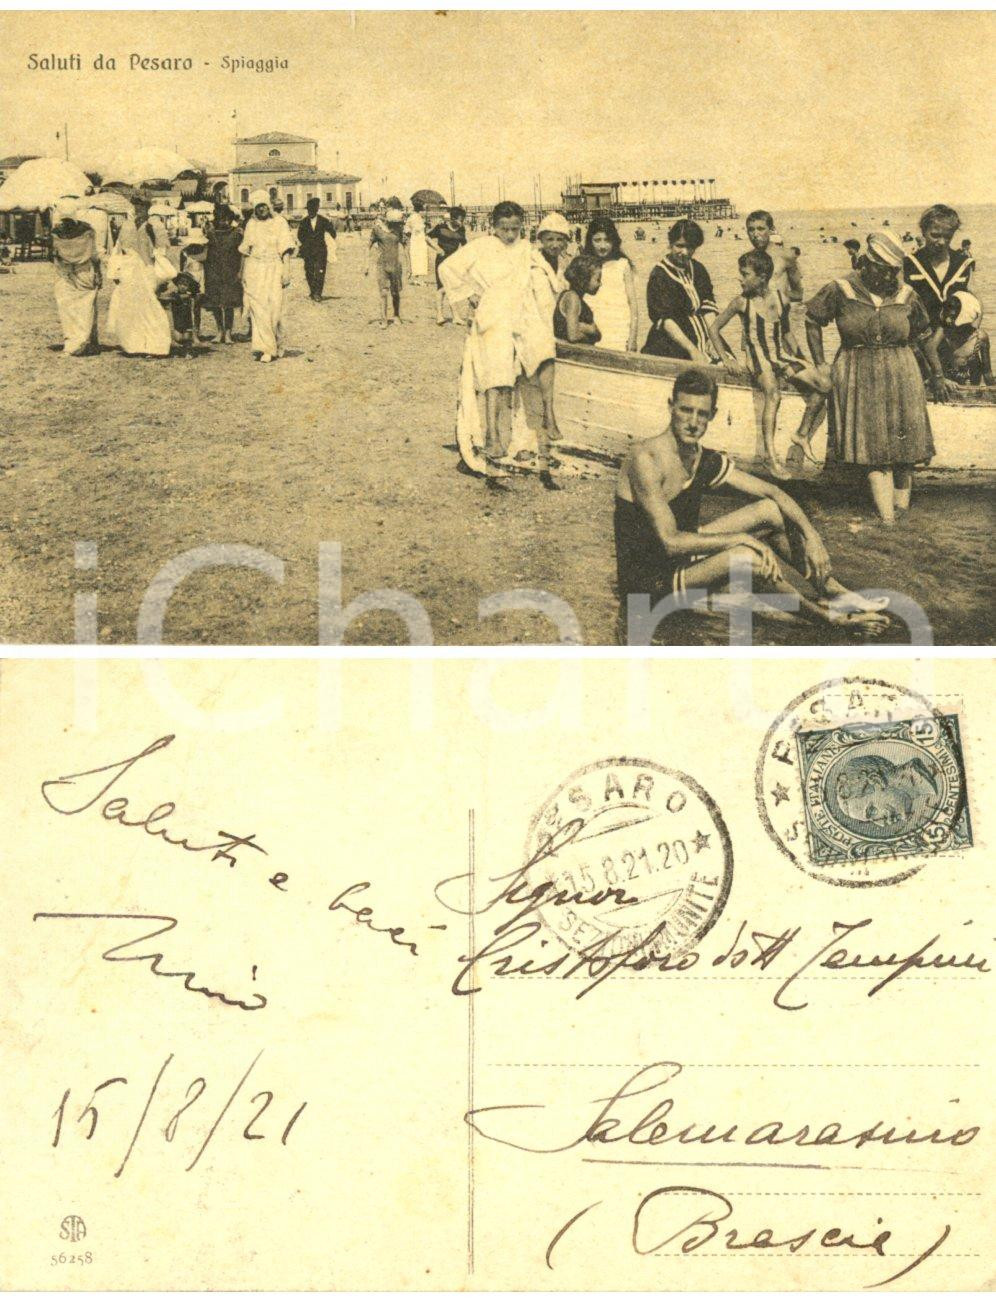 Saluti da Pesaro - Spiaggia
iCharta
Saluti e baci
15/8/21
STA
56258
PESARO
15.8.21.20
POSTE ITALIANE
CENTESIMI 15
15
Signor
Cristoforo dott Tempini
Salemarasino
(Brescia)